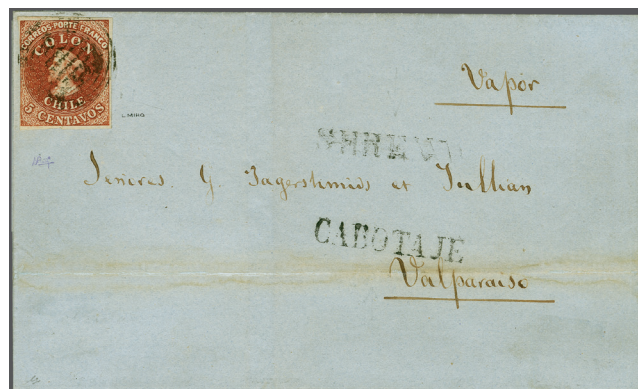 CORREOS PORTE FRANCO
COLON
CHILE
5 CENTAVOS
Vapor
L. MIHO
Senires. J. Jagershmids et Jullian
CABOTAJE
Valparaiso